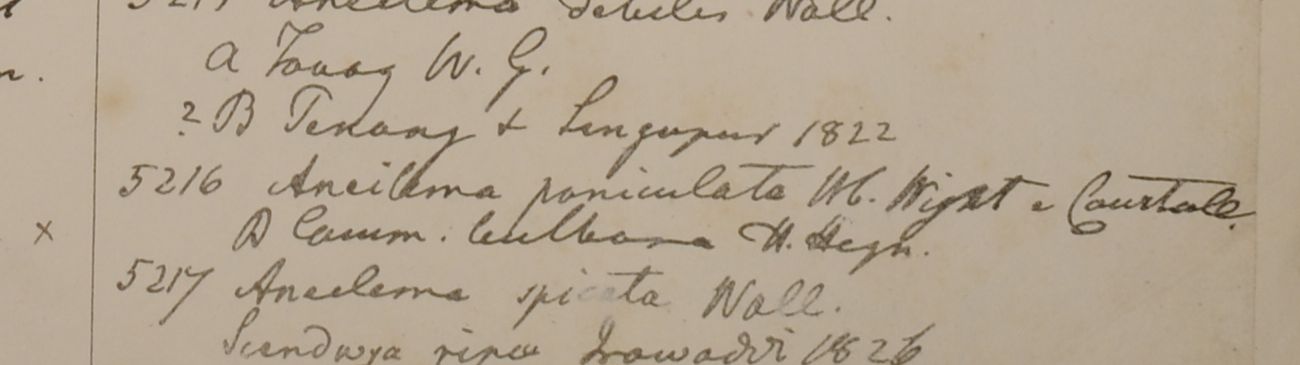 5215 Aneilema debilis Wall.
a Tavoy W. G.
? B Penang & Singapur 1822
5216 Aneilema paniculata Wall. Wight e Courtall.
B Comm. bulbosa H. Heyn.
5217 Aneilema spicata Wall.
Segndwga ripa Irawaddi 1826